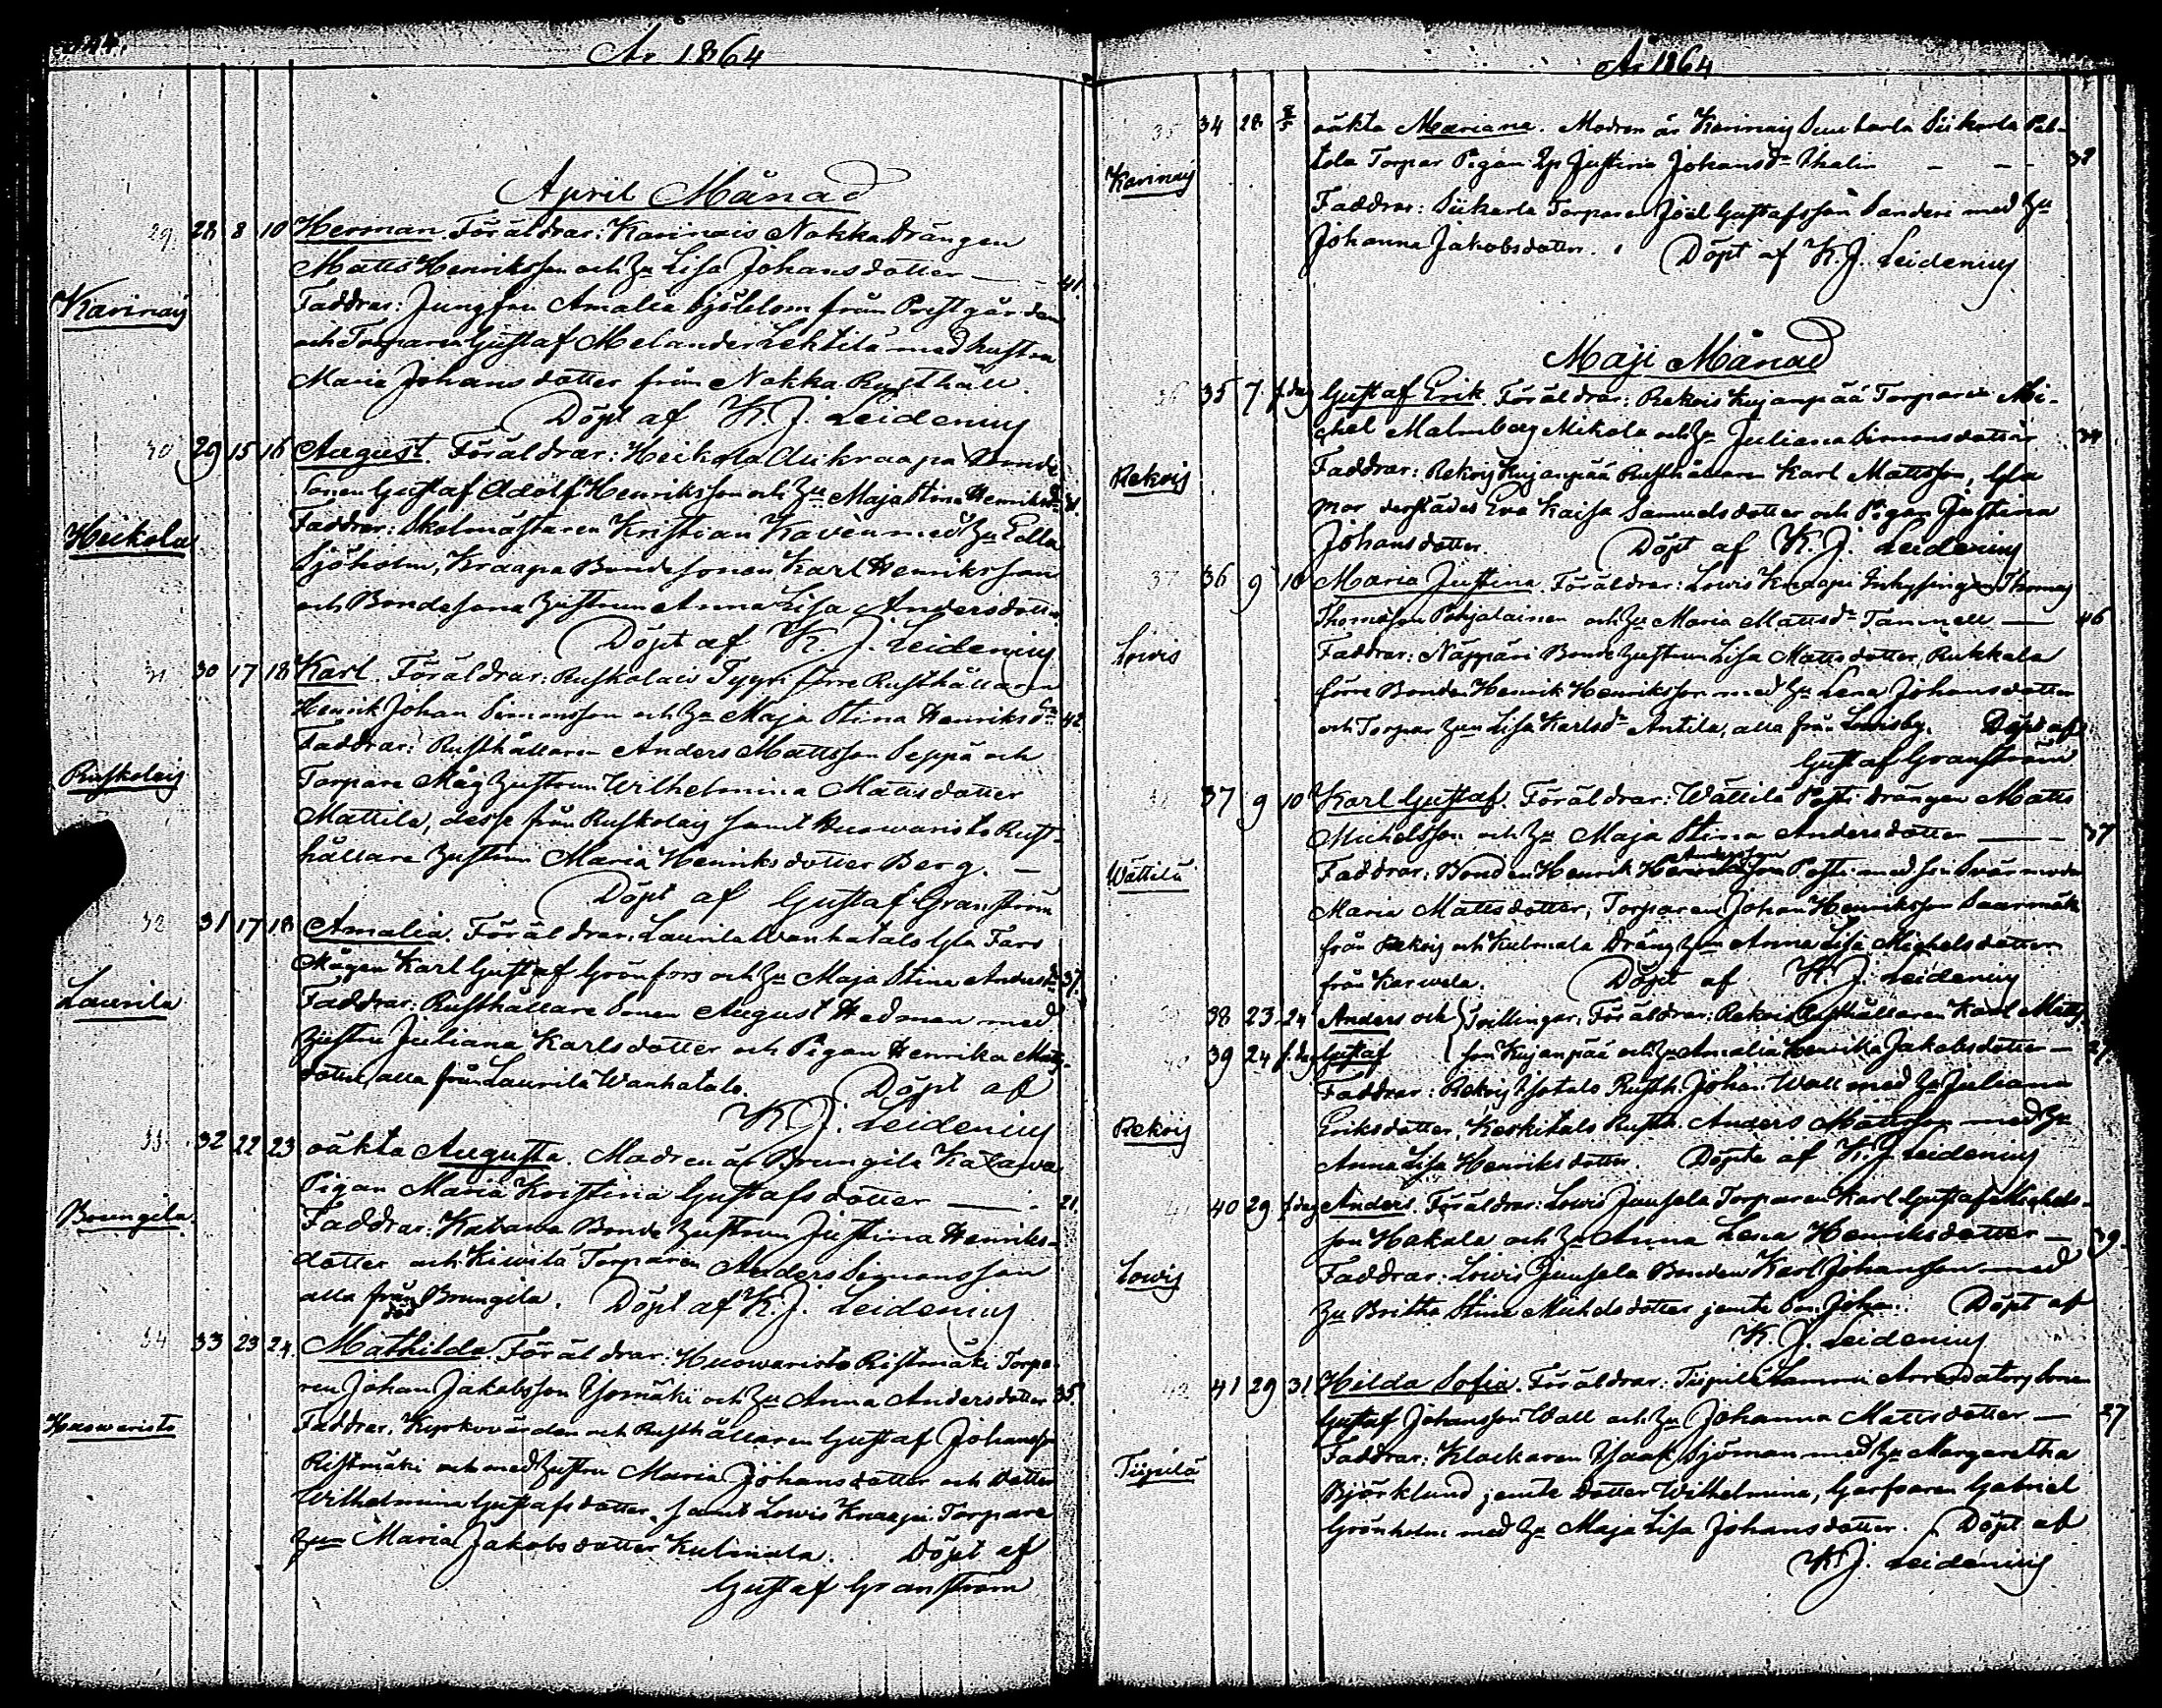 År 1864
April Månad
29 28 8 10 Herman. Föräldrar: Karinais Nokka Drängen
Matts Henriksson och Hu Lisa Johansdotter — 41.
Karinais
Faddrar: Jungfru Amalia Sjöblom från Prestgården
och Torparen Gustaf Melander Lehtilä med hustru
Maria Johansdotter från Nokka Rusthåll.
Döpt af K. J. Leidenius
30 29 15 16 August. Föräldrar: Heikola Alikraapa Bonde
Sonen Gustaf Adolf Henriksson och Hu Maja Stina Henriksdr
Heikola
Faddrar: Skolmästaren Kristian Kavén med Hu
Sjöholm, Kraapa Bondesonen Karl Henriksson
och Bondesona Hustrun Anna Lisa Andersdotter
Döpt af K. J. Leidenius
31 30 17 18 Karl. Föräldrar: Ruskolais Tyyri förre Rusthållaren
Henrik Johan Simonsson och Hu Maja Stina Henriksdr 42.
Faddrar: Rusthållaren Anders Mattsson Seppä och
Ruskolais
Torpare Måg Hustrun Wilhelmina Mattsdotter
Mattila, desse från Ruskolais samt Huowaristo Rust-
hållare Hustrun Maria Henriksdotter Berg. —
Döpt af Gustaf Granström
32 31 17 18 Amalia. Föräldrar: Laurila Wanhatalo Gla Fars
Mågen Karl Gustaf Grönfors och Hu Maja Stina Andersdr 37.
Laurila
Faddrar: Rusthållare Sonen August Hedman med
Hustru Juliana Karlsdotter och Pigan Henrika Matts-
dotter, alla från Laurila Wanhatalo. Döpt af
K. J. Leidenius
33 32 22 23 oäkta Augusta. Modren är Brungila Katawa
Pigan Maria Kristina Gustafsdotter — 21.
Brungila
Faddrar: Katawa Bonde Hustrun Justina Henriks-
dotter och Kiwilä Torparen Anders Simonsson
alla från Brungila. Döpt af K. J. Leidenius
död
34 33 23 24 Mathilda. Föräldrar: Huowaristo Ristmäki Torpa-
ren Johan Jakobsson Isomäki och Hu Anna Andersdotter 35.
Huowaristo
Faddrar: Kyrkovärden och Rusthållaren Gustaf Johansson
Ristmäki och med Hustru Maria Johansdotter och dotter
Wilhelmina Gustafsdotter, samt Lowis Knaapi Torpare
Hun Maria Jakobsdotter Kulmala. Döpt af
Gustaf Granström
År 1864
35 34 28 8/5 oäkta Mariana. Modren är Karinais Siikarla Pel-
tola Torpar Pigan Ep Justina Johansdr Thalin — 38
Karinais
Faddrar: Siikarla Torparen Joel Gustafsson Sanderi med Hu
Johanna Jakobsdotter. Döpt af K. J. Leidenius
Maji Månad
36 35 7 s. dag Gustaf Erik. Föräldrar: Rekois Kujanpää Torparen Mi-
chel Malmberg Mikola och Hu Juliana Simonsdotter 34
Rekois
Faddrar: Rekois Kujanpää Rusthållaren Karl Mattsson, Gla
Mor derstädes Eva Kaisa Samuelsdotter och Pigan Justina
Johansdotter. Döpt af K. J. Leidenius
37 36 9 10 Maria Justina. Föräldrar: Lowis Knaapi Inhysingen Thomas
Thomasson Pohjalainen och Hu Maria Mattsdr Tammell — 46
Lowis
Faddrar: Näppäri Bonde Hustrun Lisa Mattsdotter, Rukkala
förre Bonden Henrik Henriksson med Hu Lena Johansdotter
och Torpar Hun Lisa Karlsdr Antila, alla från Lowisby. Döpt af
Gustaf Granström
37 9 10 Karl Gustaf. Föräldrar: Wättilä Posti drängen Matts
Michelsson och Hu Maja Stina Andersdotter — 37
Wättilä
Faddrar: Bonden Henrik Andersson Posti med sin Svärmoder
Maria Mattsdotter, Torparen Johan Henriksson Saarmäki
från Rekois och Kulmala Dräng Hun Anna Lisa Michelsdotter
från Karwela. Döpt af K. J. Leidenius
38 23 24 Anders och } Tvillingar: Föräldrar: Rekois Rusthållaren Karl Matts-
39 24 s. dag Gustaf son Kujanpää och Hu Amalia Henrika Jakobsdotter —
Faddrar: Rekois Isotalo Rusth. Johan Wall med Hu Juliana
Rekois
Eriksdotter, Keskitalo Rusth. Anders Mattsson med Hu
Anna Lisa Henriksdotter. Döpte af K. J. Leidenius
41 40 29 s. dag Anders. Föräldrar: Lowis Juusela Torparen Karl Gustaf Michels-
son Hakala och Hu Anna Lena Henriksdotter — 39.
Lowis
Faddrar: Lowis Juusela Bonden Karl Johansson med
Hu Britha Stina Michelsdotter jemte Son Johan. Döpt af
K. J. Leidenius
41 29 31 Hilda Sofia. Föräldrar: Tiipilä Lammi Arrendators Sonen
Gustaf Johansson Wall och Hu Johanna Mattsdotter — 27
Tiipilä
Faddrar: Klockaren Isaak Björman med Hu Margaretha
Björklund jemte Dotter Wilhelmina, Garfvaren Gabriel
Grönholm med Hu Maja Lisa Johansdotter. Döpt af
K. J. Leidenius